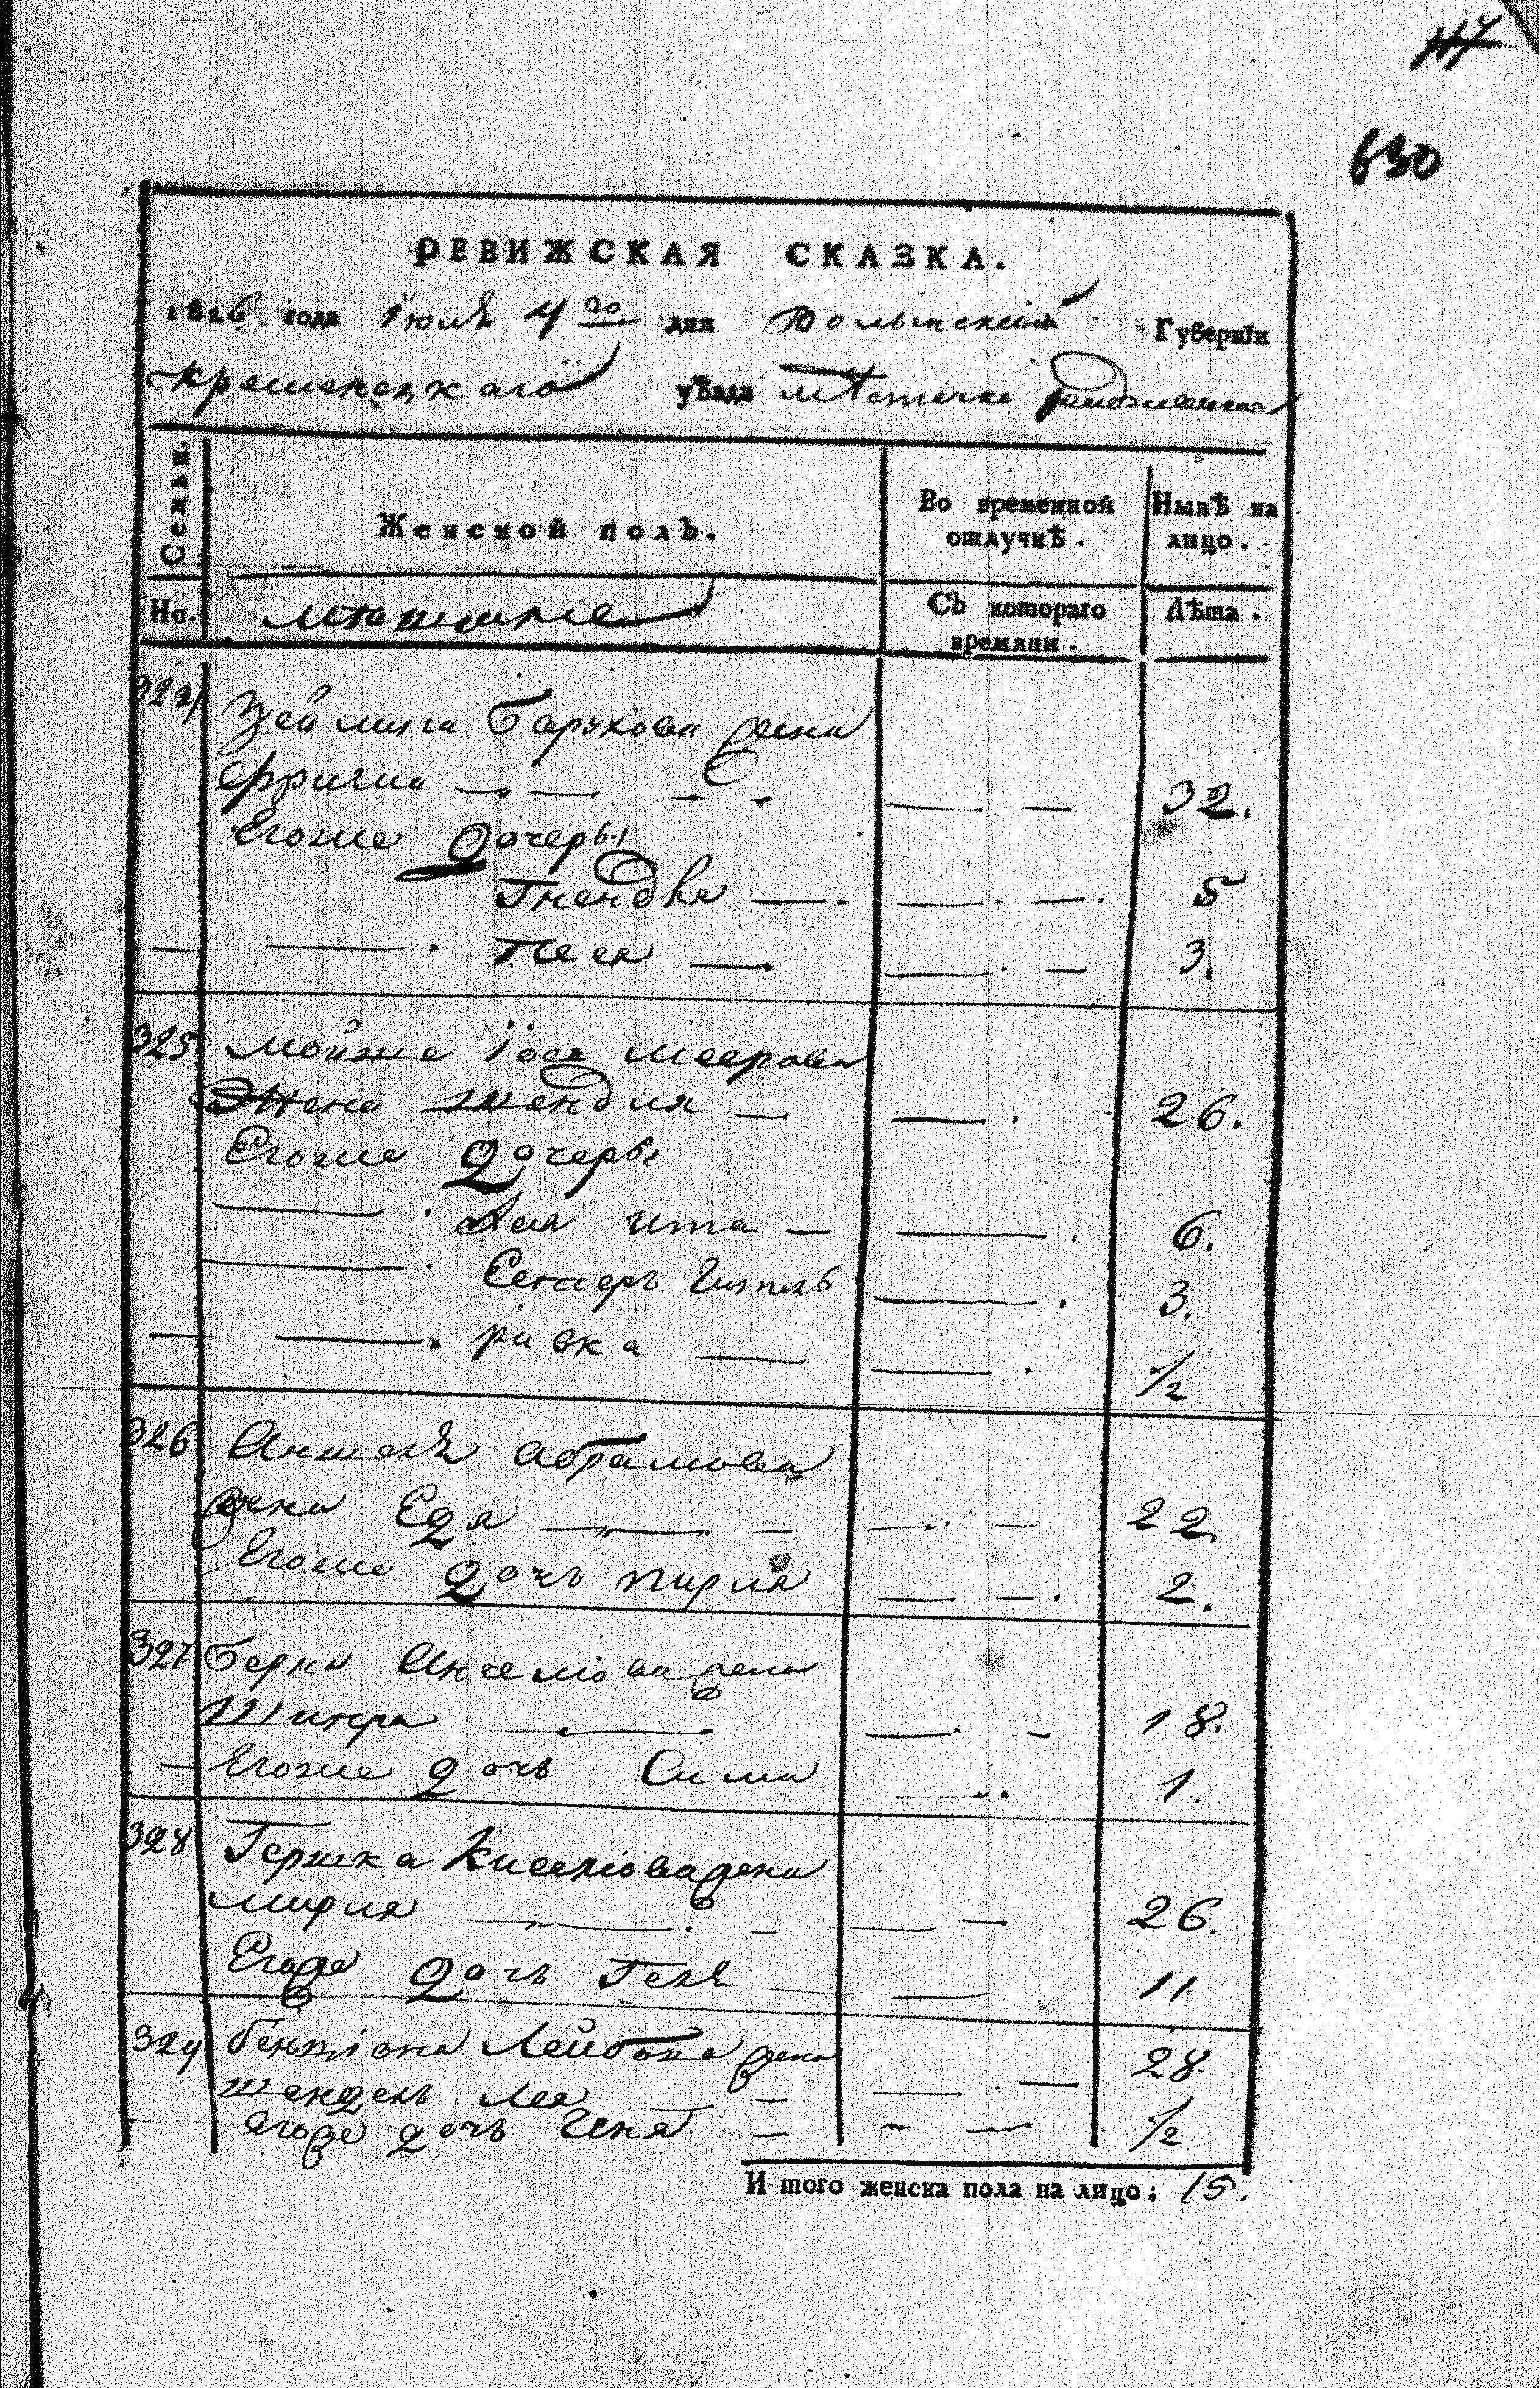 630
РЕВИЖСКАЯ СКАЗКА.
1816 года Іюля 4го дня Волынской Губерніи
Кременецкаго уѣзда мѣстечка
Семьи.
Женской полъ.
Во временной отлучкѣ.
Нынѣ на лицо.
Но.
мѣщанскіе
Съ котораго времяни.
Лѣта.
324
Барухова жена
Фригма 32.
Егоже дочеры
Гнендля 5
Песя 3.
325 Мойже Іось Меерова
Жена Шендля 26.
Егоже дочеры
Ася Ита 6.
Естеръ Гитль 3.
ривка 1/2
326 Аншель Абрамова
жена Едя 22.
Егоже дочъ пирля 2.
327 Берка Анселіова жена
Шифра 18.
Егоже дочъ Сима 1.
328 Гершка Киселіова жена
мирля 26.
Егоже дочъ Геля 11
329 Бенціона Лейбова жена 28.
шендель лея
Егоже дочъ Геня 1/2
И того женска пола на лицо: 15.